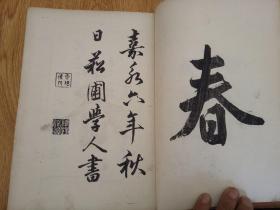 春
嘉永六年秋
日菘圃學人書